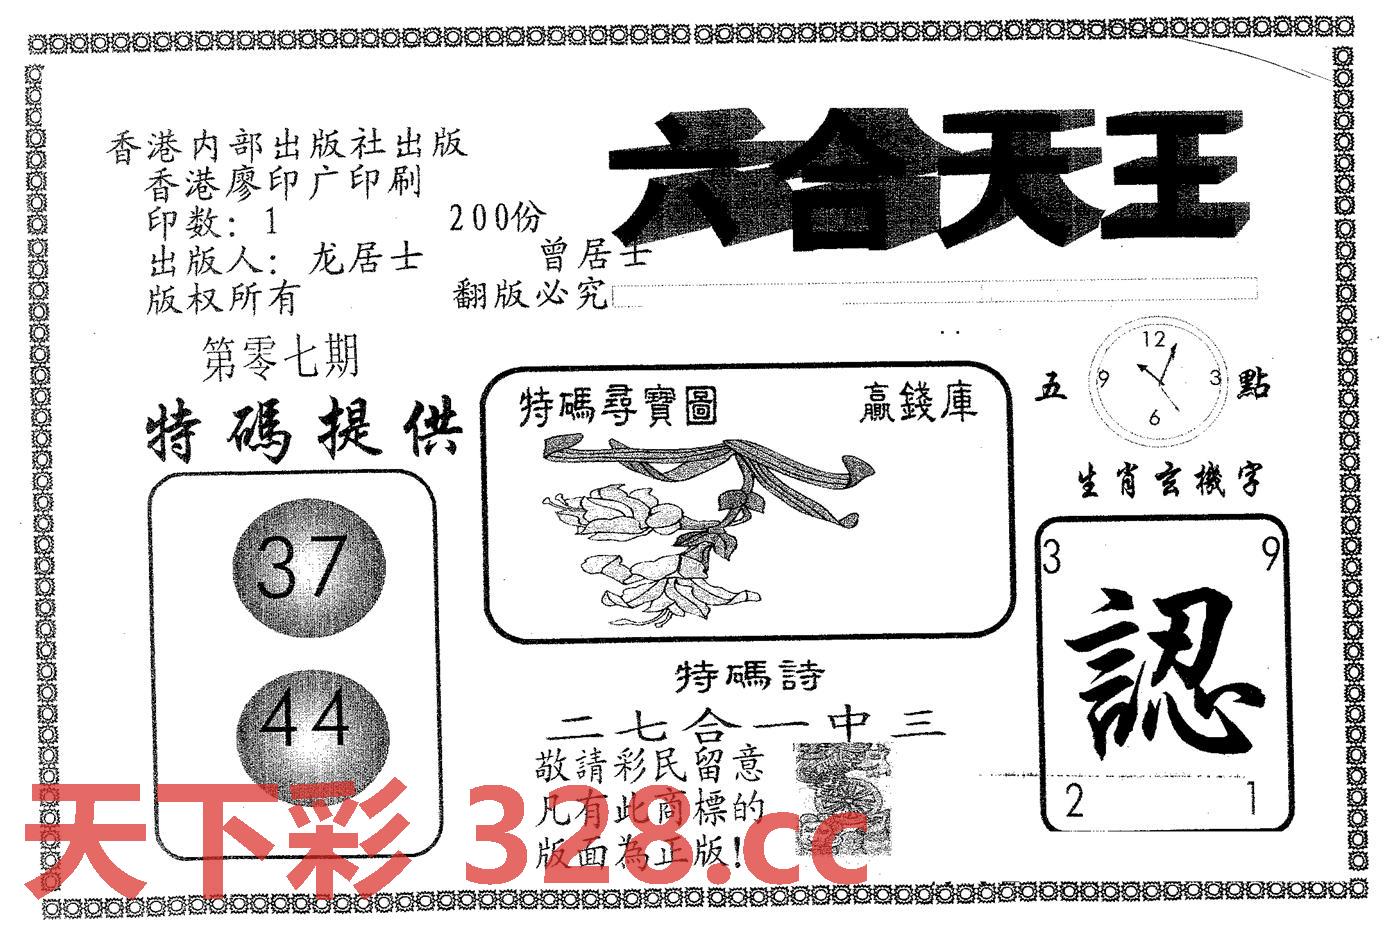 六合天王
香港内部出版社出版
香港廖印广印刷
印数：1 200份
出版人：龙居士 曾居士
版权所有 翻版必究
第零七期
特碼提供
37
44
特碼尋寶圖 贏錢庫
五 點
12
9 3
6
生肖玄機字
3 9
認
2 1
特碼詩
二七合一中三
敬請彩民留意
凡有此商標的
版面為正版！
天下彩 328.cc